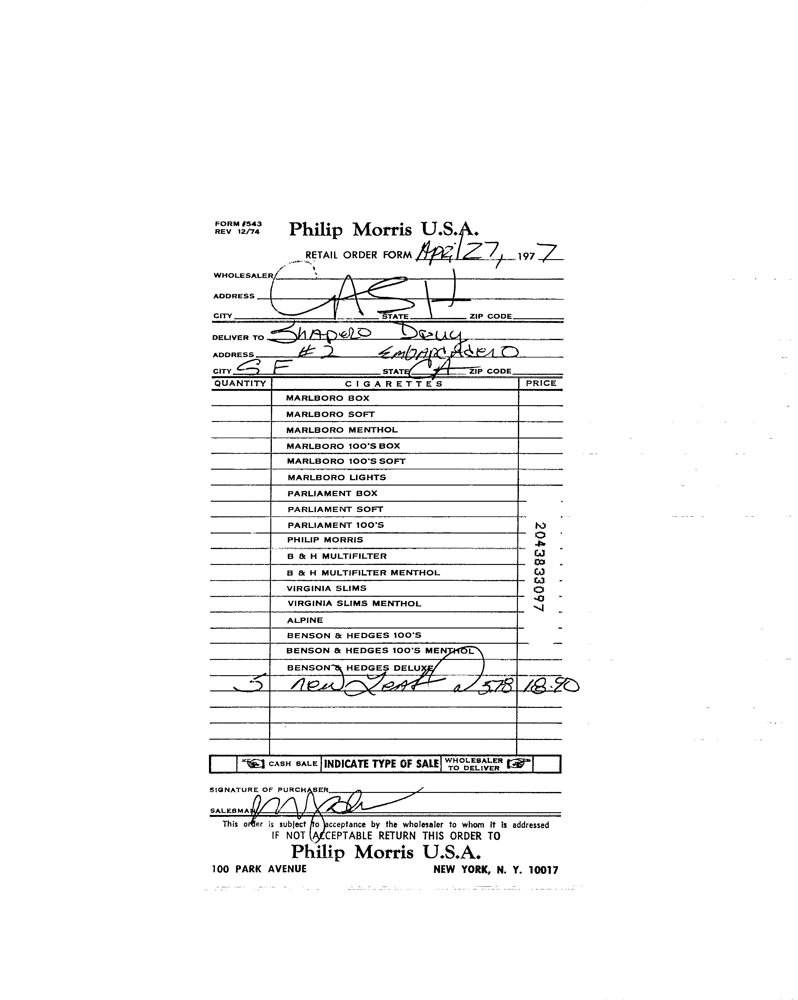 FORM #543
REV 12/74
Philip Morris U.S.A.
RETAIL ORDER FORM April 27, 1977
WHOLESALER
CASH
ADDRESS
CITY STATE ZIP CODE
DELIVER TO Shapero Doug
ADDRESS #2 Embarcadero
CITY SF STATE CA ZIP CODE
QUANTITY CIGARETTES PRICE
MARLBORO BOX
MARLBORO SOFT
MARLBORO MENTHOL
MARLBORO 100'S BOX
MARLBORO 100'S SOFT
MARLBORO LIGHTS
PARLIAMENT BOX
PARLIAMENT SOFT
PARLIAMENT 100'S
PHILIP MORRIS
B & H MULTIFILTER
B & H MULTIFILTER MENTHOL
VIRGINIA SLIMS
VIRGINIA SLIMS MENTHOL
ALPINE
BENSON & HEDGES 100'S
BENSON & HEDGES 100'S MENTHOL
BENSON & HEDGES DELUXE
5 new Leaf 18.90
2043833097
CASH SALE INDICATE TYPE OF SALE WHOLESALER TO DELIVER
SIGNATURE OF PURCHASER
SALESMAN
This order is subject to acceptance by the wholesaler to whom it is addressed
IF NOT ACCEPTABLE RETURN THIS ORDER TO
Philip Morris U.S.A.
100 PARK AVENUE NEW YORK, N. Y. 10017